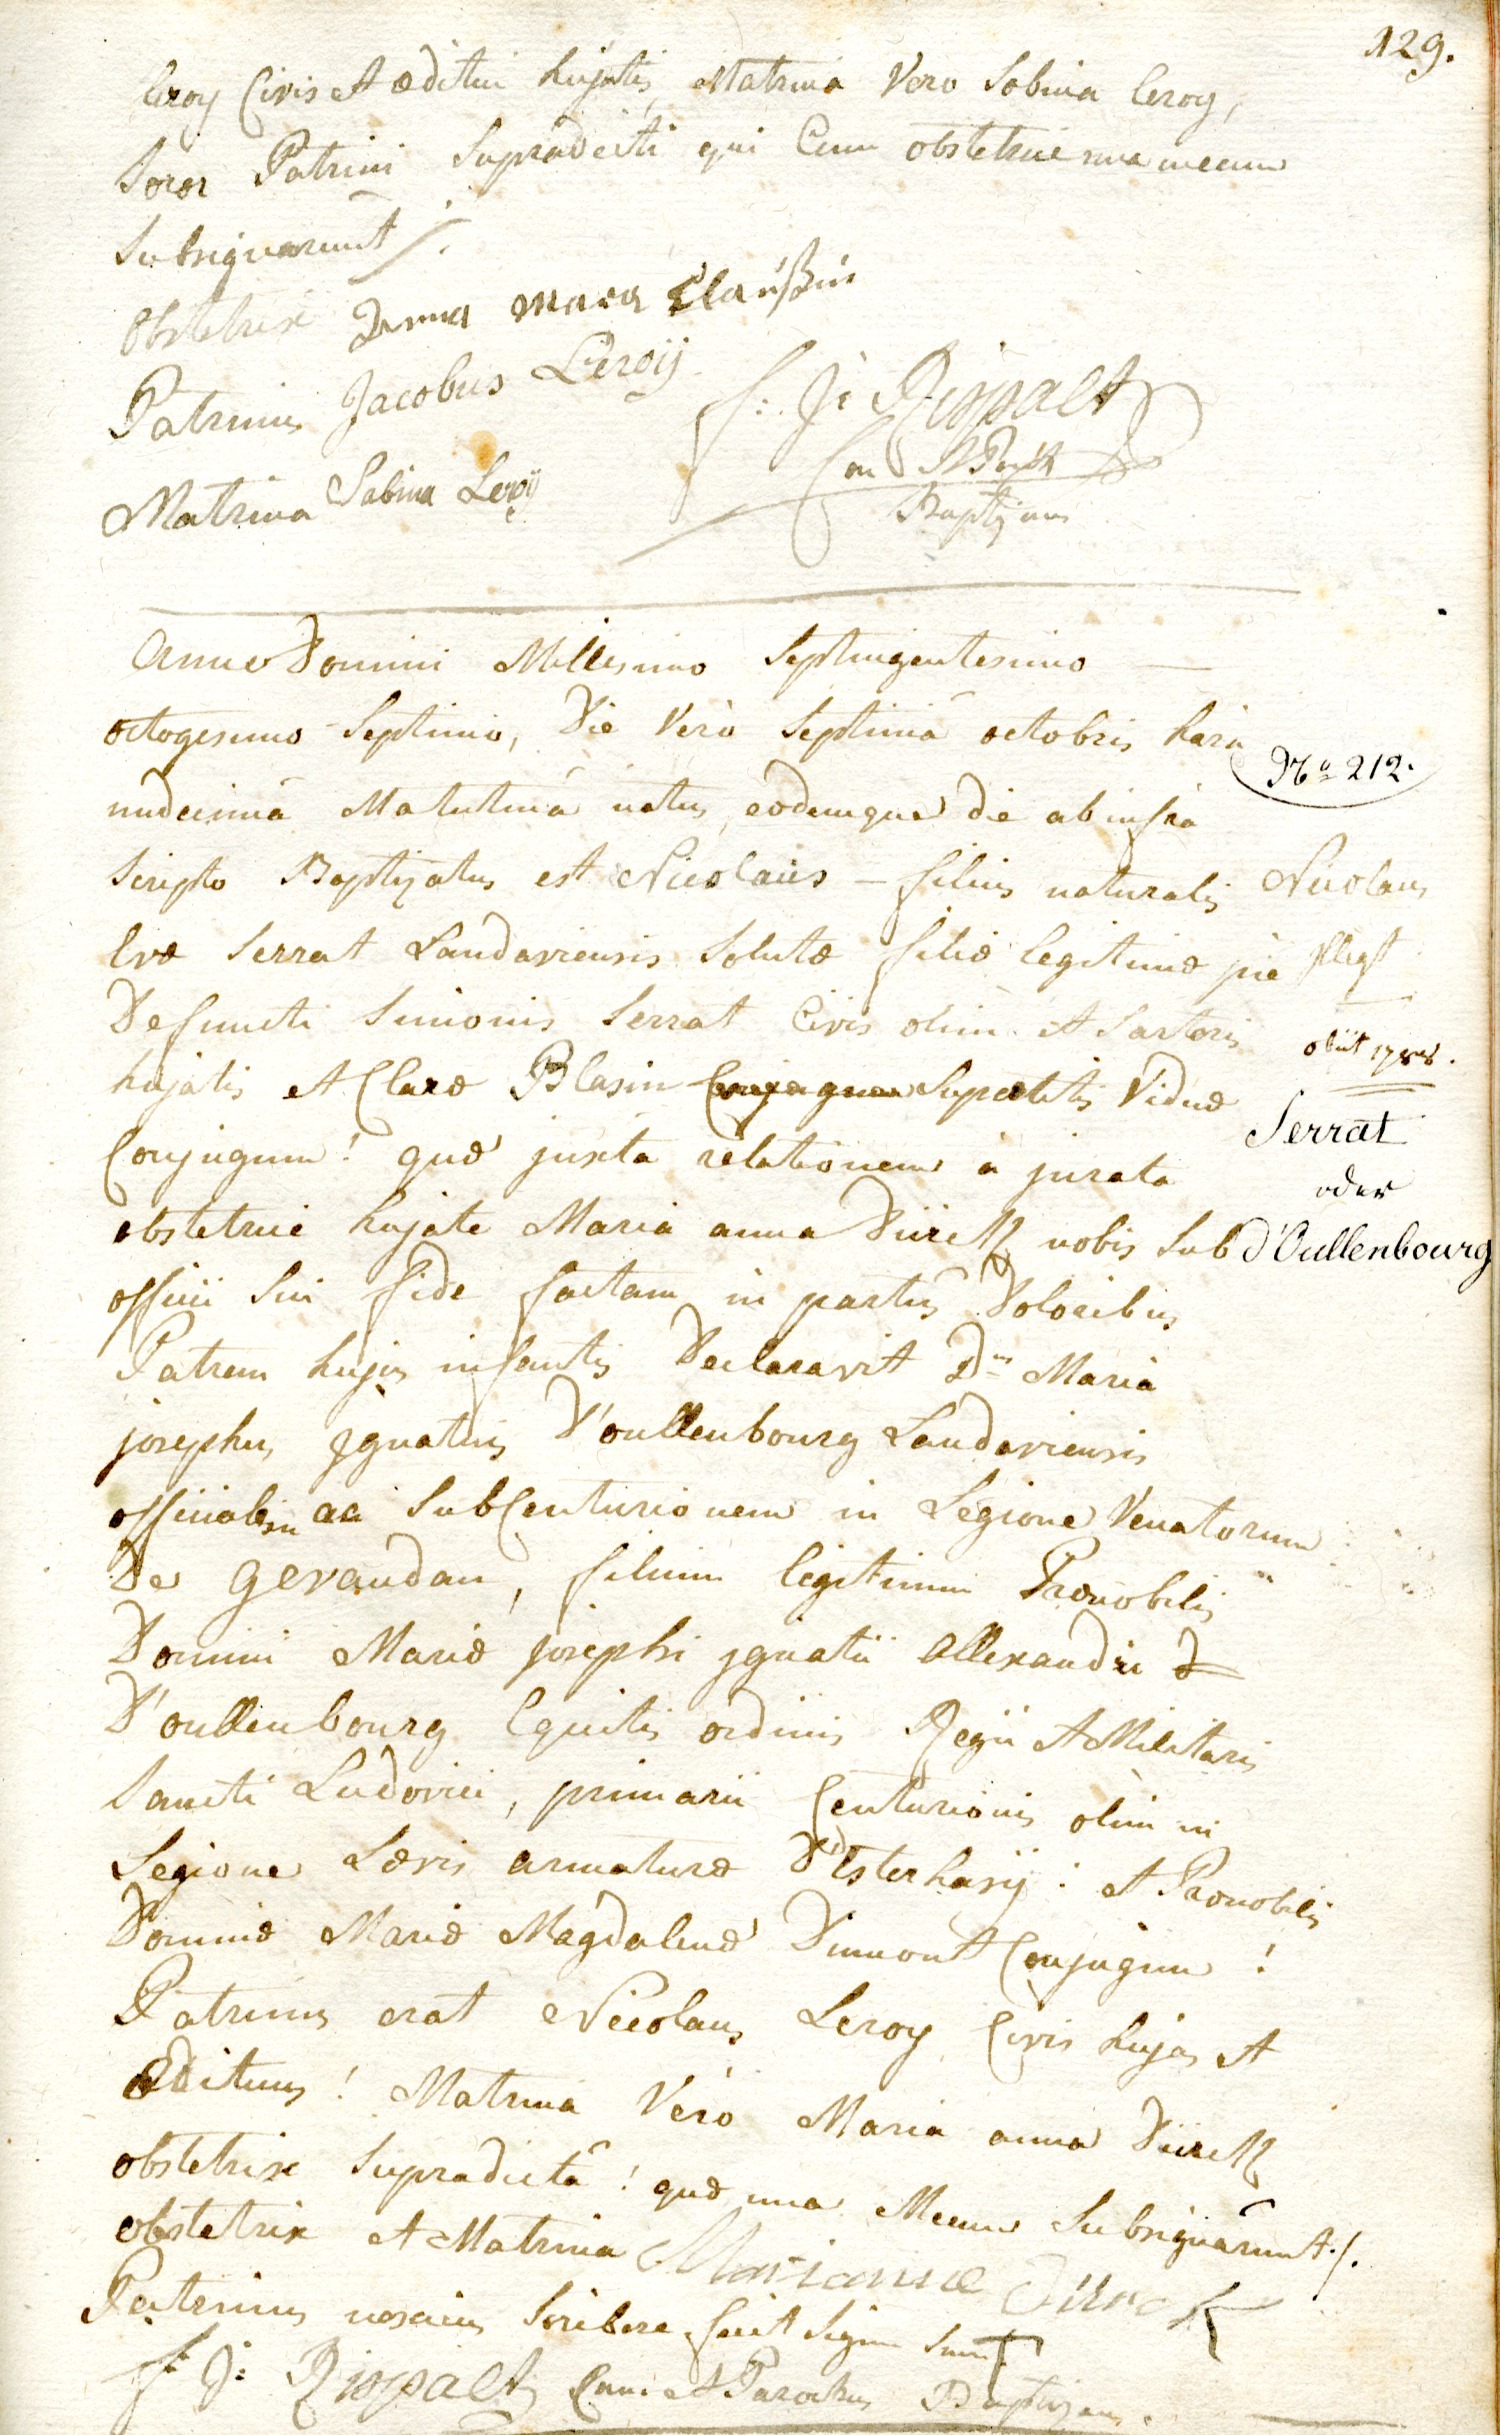 129.
leroy Civis et æditui hujatis, Matrina Vero Sabina leroy,
Soror Patrini Supradicti qui Cum obstetrice una mecum
Subsignarunt /.
Obstetrix Anna Mara Claúßin
Patrinus Jacobus Leroÿ
Matrina Sabina Leroÿ
f: J: Rispalt
Can et Par
Baptizans
Anno Domini Millesimo Septingentesimo —
octogesimo Septimo, Die Vero Septimâ octobris hora
undecimâ Matutinâ natus, eodemque die ab infra
Scripto Baptizatus est Nicolaus — filius naturalis
Evæ Serrat Landaviensis Solutæ filiæ legitimæ piè
Defuncti Simonis Serrat Civis olim et Sartoris
hujatis et Claræ Blasin Superstitis Viduæ
Conjugum! quæ juxta relationem à jurata
obstetrice hujate Maria anna Dürck nobis Sub
officii Sui fide factam in partûs Doloribus
Patrem hujus infantis Declaravit D.um Maria
josephus Ignatius D'oullenbourg Landaviensis
officialem ac SubCenturionem in Legione Venatorum
De Gevaudan, filium legitimum Prænobilis
Domini Mariæ josephi ignatii Allexandri D
D'oullenbourg Equitis ordinis Regii et Militaris
Sancti Ludovici, primarii Centurionis olim in
Legione Lævis armaturæ D'Esterhasÿ: et Prænobilis
Dominæ Mariæ Magdalenæ Dumont Conjugum!
Patrinus erat Nicolaus Leroy Civis hujas et
Ædituus! Matrina Vero Maria anna Dürck
obstetrix Supradicta! quæ una Mecum Subsignarunt./.
obstetrix et Matrina Marianne Dürck
Patrinus nescius Scribere fecit Signum Suum †
f: J: Rispalt Can. et Parochus Baptizans.
No 212.
Nicolaus
illegt
obiit 1788.
Serrat
oder
d'Oullenbourg